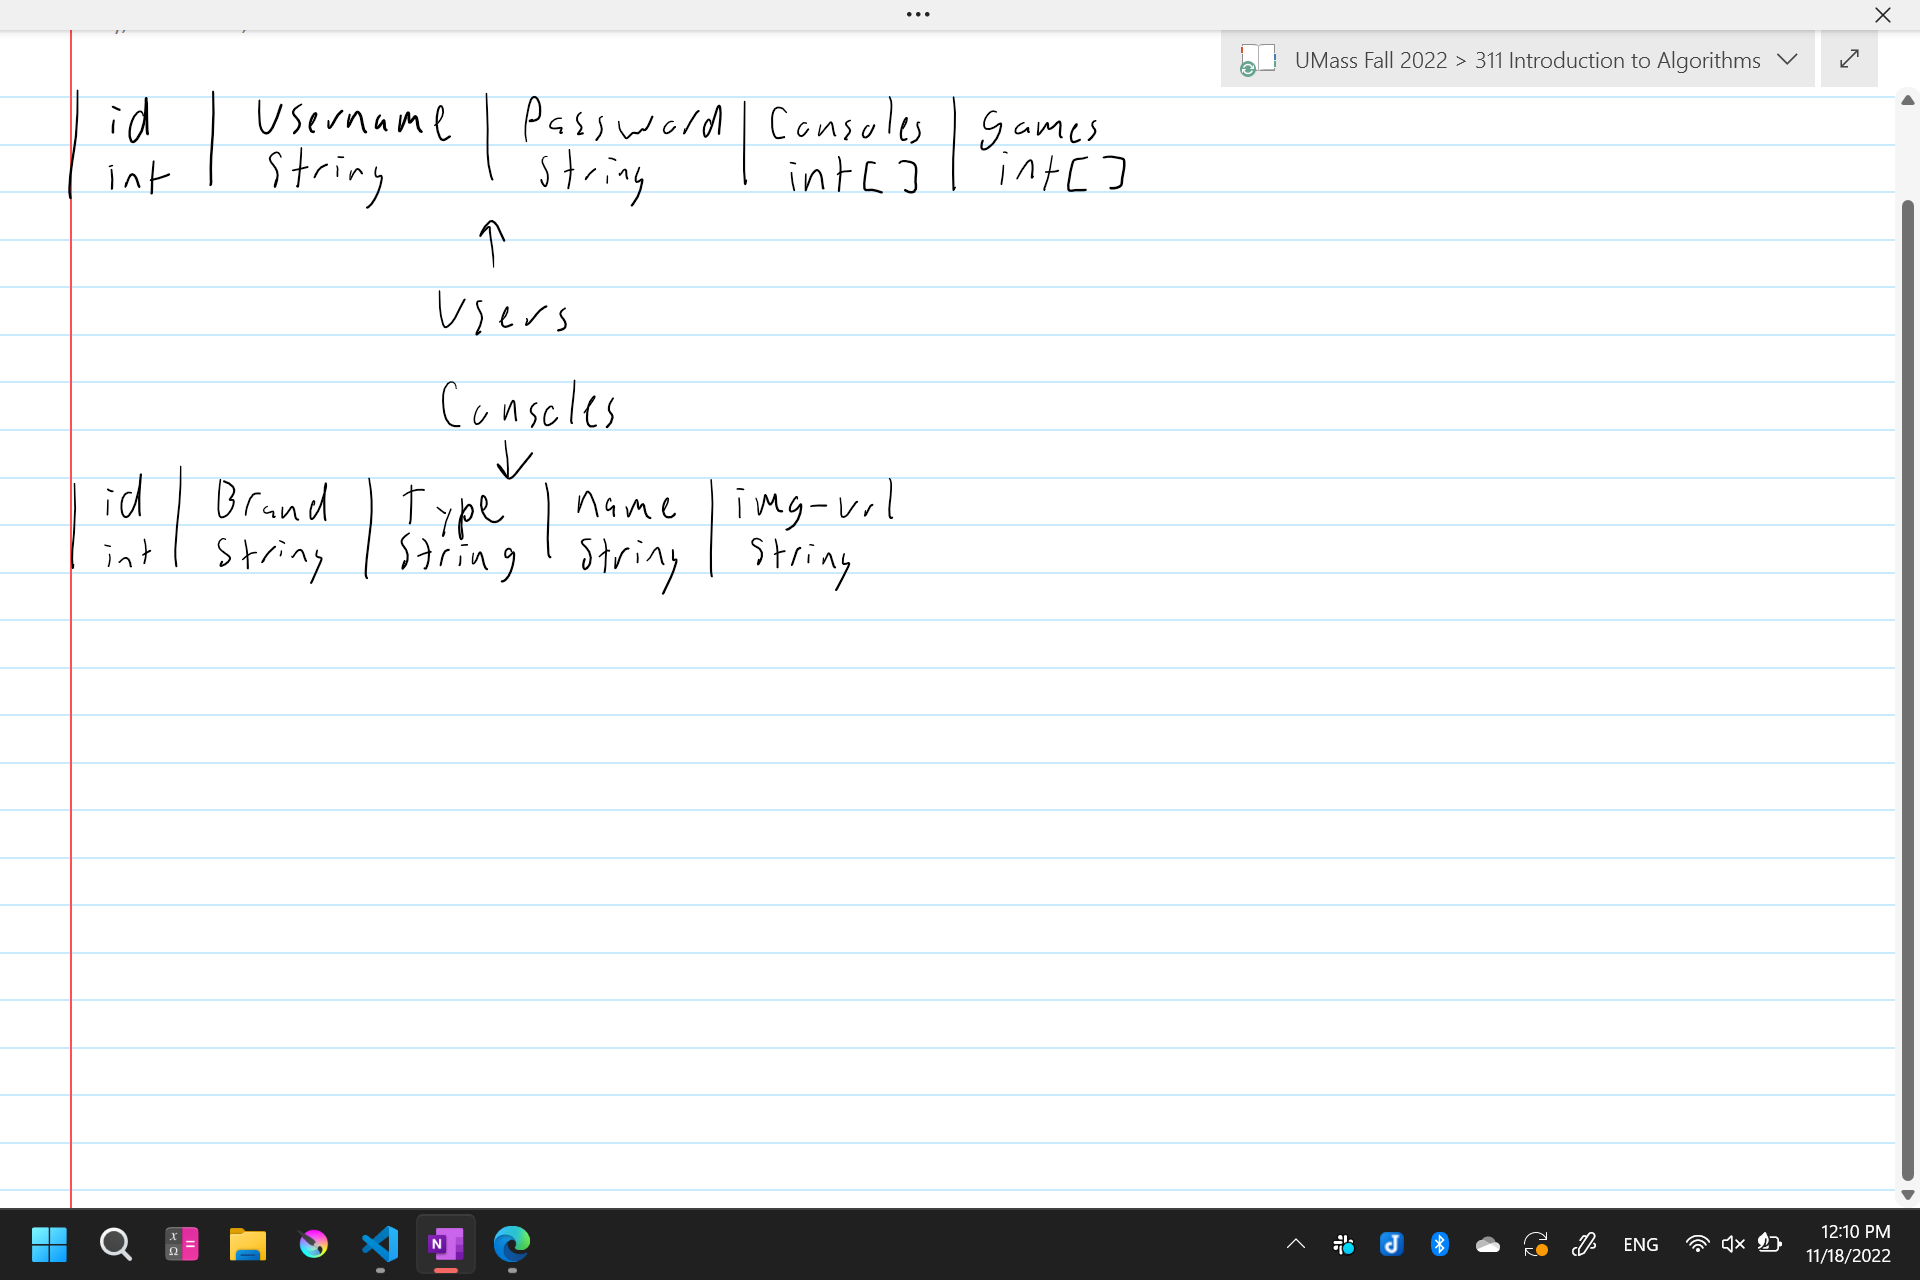 UMass Fall 2022 > 311 Introduction to Algorithms
| id | Username | Password | Consoles | games
int String String int[] int[]
↑
Users
Consoles
↓
| id | Brand | Type | name | img-url
int String String String String
ENG
12:10 PM
11/18/2022